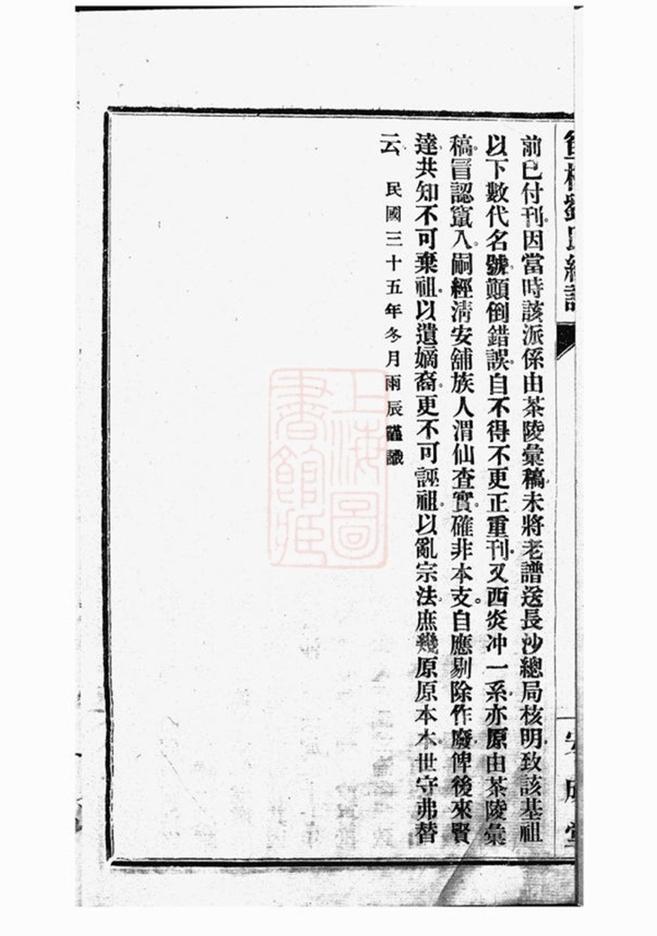 前已付刊因當時該派係由茶陵彙稿未將老譜送長沙總局核明致該基祖
以下數代名號顛倒錯誤自不得不更正重刊又西炎冲一系亦原由茶陵彙
稿冒認竄入嗣經清安舖族人渭仙查實確非本支自應剔除作廢俾後來賢
達共知不可棄祖以遺嫡裔更不可誣祖以亂宗法庶幾原原本本世守弗替
云
民國三十五年冬月雨辰謹識
上海圖書館藏
安成堂